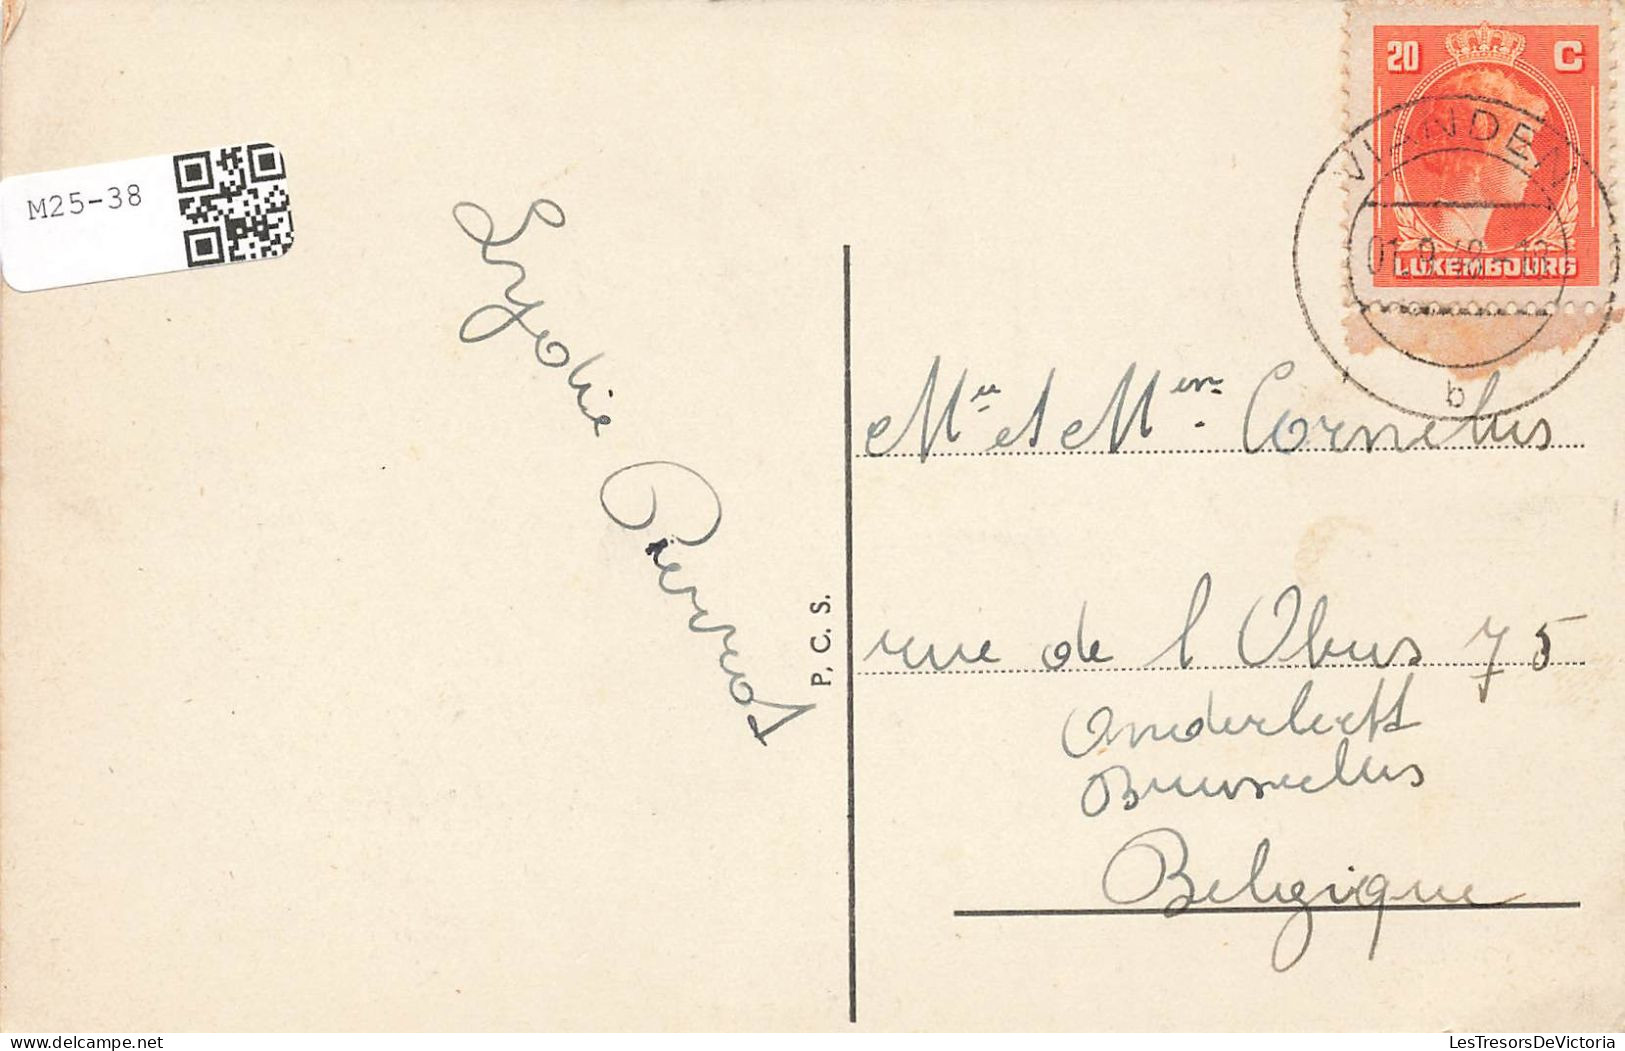 M25-38
20 C
LUXEMBOURG
VIANDEN
b
Lydie Pierrot
P. C. S.
Mr et Mme Cornelus
rue de l Obus 75
Anderlecht
Bruxelles
Belgique
delcampe.net
LesTresorsDeVictoria